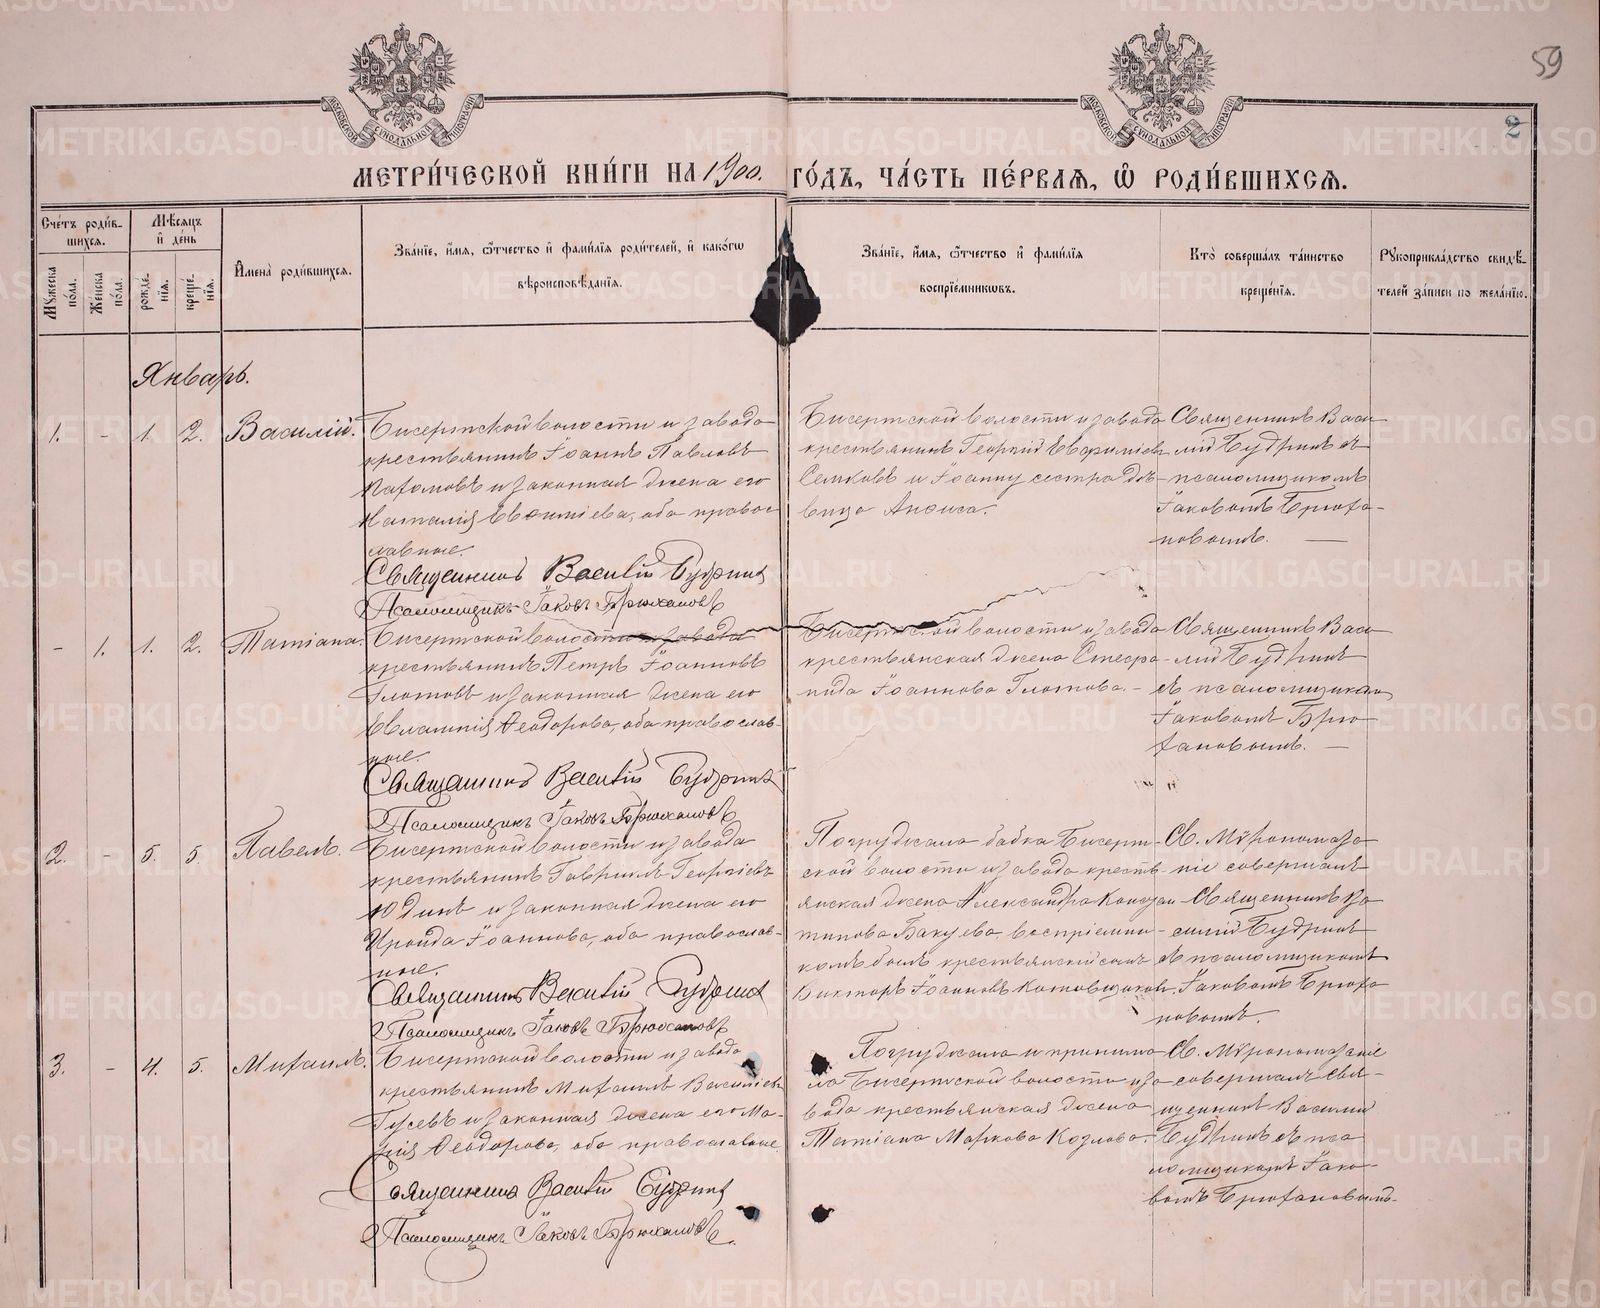 59
2
МОСКОВСКОЙ СѴНОДАЛЬНОЙ ТИПОГРАФІИ
МОСКОВСКОЙ СѴНОДАЛЬНОЙ ТИПОГРАФІИ
МЕТРИ́ЧЕСКОЙ КНИ́ГИ НА 1900. ГО́ДЪ, ЧА́СТЬ ПЕ́РВАЯ, Ѽ РОДИ́ВШИХСЯ.
Сче́тъ роди́в-
шихся.
Мѣ́сяцъ
и҆ де́нь
Мꙋжеска
по́ла.
Же́нска
по́ла.
рожде́-
нїя.
креще́-
нїя.
И҆мена̀ роди́вшихся.
Зва́нїе, и҆́мя, ѻ҆́тчество и҆ фами́лїя роди́телей, и҆ како́гѡ
вѣроисповѣ́данїя.
Зва́нїе, и҆́мя, ѻ҆́тчество и҆ фами́лїя
воспрїе́мникѡвъ.
Кто̀ соверша́лъ та́инство
креще́нїя.
Рꙋкоприкла́дство свидѣ́-
телей за́писи по жела́нїю.
Январь.
1. - 1. 2. Василій.
Бисертской волости и завода
крестьянинъ Іоаннъ Павловъ
Пахомовъ и законная жена его
Наталія Евѳиміева, оба правос
лавные.
Священникъ Василій Будринъ
Псаломщикъ Іаковъ Брюхановъ
Бисертской волости и завода
крестьянинъ Георгій Евфиміев
и Іоанну сестра дѣ-
вица Анѳиса.
Священникъ Васи
лій Будринъ съ
псаломщикомъ
Іаковомъ Брюха-
новымъ. —
- 1. 1. 2. Татіана.
Бисертской волости и завода
крестьянинъ Петръ Іоанновъ
Глотовъ и законная жена его
Евлампія Ѳеодорова, оба православ-
ные.
Священникъ Василій Будринъ
Псаломщикъ Іаковъ Брюхановъ
Бисертской волости и завода
крестьянская жена Стефа-
нида Іоаннова Глотова. -
Священникъ Васи
лій Будринъ
съ псаломщикомъ
Іаковомъ Брю-
хановымъ. —
2. - 5. 5. Павелъ.
Бисертской волости и завода
крестьянинъ Гавріилъ Георгіевъ
Юдинъ и законная жена его
Ираида Іоаннова, оба православ-
ные.
Священникъ Василій Будринъ
Псаломщикъ Іаковъ Брюхановъ
Погружала бабка Бисерт-
ской волости и завода кресть-
янская жена Александра Констан
тинова Бакуева, воспріемни-
комъ былъ крестьянскій сынъ
Викторъ Іоанновъ Котовщиков.
Св. Мѵропомаза
ніе совершалъ
Священникъ Ва
силій Будринъ
съ псаломщикомъ
Іаковомъ Брюха
новымъ.
3. - 4. 5. Михаилъ.
Бисертской волости и завода
крестьянинъ Михаилъ Васильевъ
Гусевъ и законная жена его Ма-
рія Ѳеодорова, оба православные.
Священникъ Василій Будринъ
Псаломщикъ Іаковъ Брюхановъ.
Погружала и принима
ла Бисертской волости и за
вода крестьянская жена
Татіана Маркова Козлова.
Св. Мѵропомазаніе
совершалъ Свя-
щенникъ Василій
Будринъ съ пса
ломщикомъ Іако-
вомъ Брюхановымъ.
METRIKI.GASO-URAL.RU